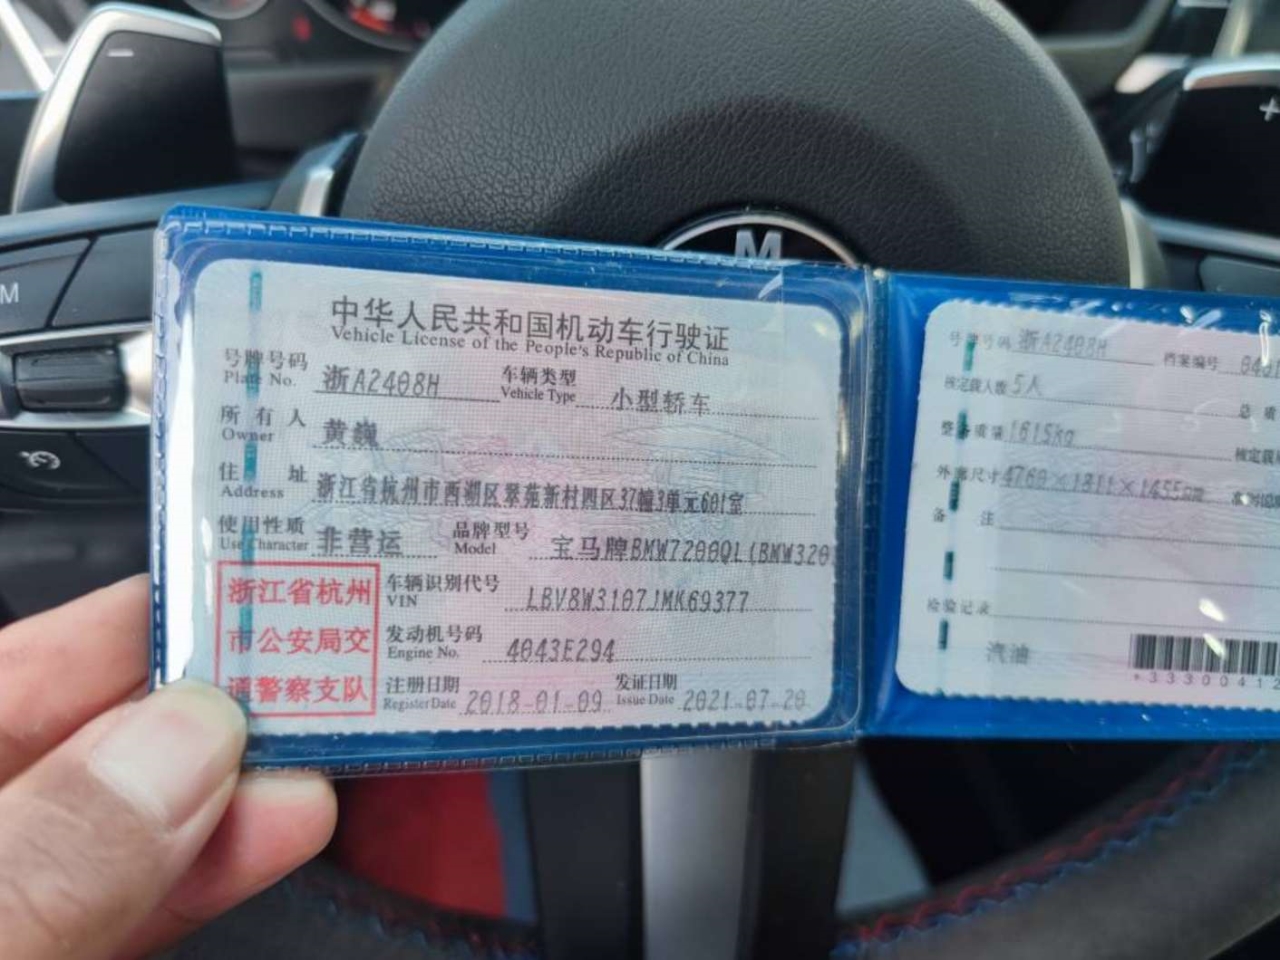 中华人民共和国机动车行驶证
Vehicle License of the People's Republic of China
号牌号码 浙A2408H 车辆类型 小型轿车
Plate No. Vehicle Type
所有人 黄巍
Owner
住址 浙江省杭州市西湖区翠苑新村四区37幢3单元601室
Address
使用性质 非营运 品牌型号 宝马牌BMW7200QL(BMW320
Use Character Model
浙江省杭州
市公安局交
通警察支队
车辆识别代号 LBV8W3107JMK69377
VIN
发动机号码 4043E294
Engine No.
注册日期 2018-01-09 发证日期 2021-07-20
Register Date Issue Date
号牌号码 浙A2408H 档案编号
核定载人数 5人 总质
整备质量 1615kg 核定载
外廓尺寸 4760×1811×1455mm
备注
检验记录
汽油
*3330041
M
M
+